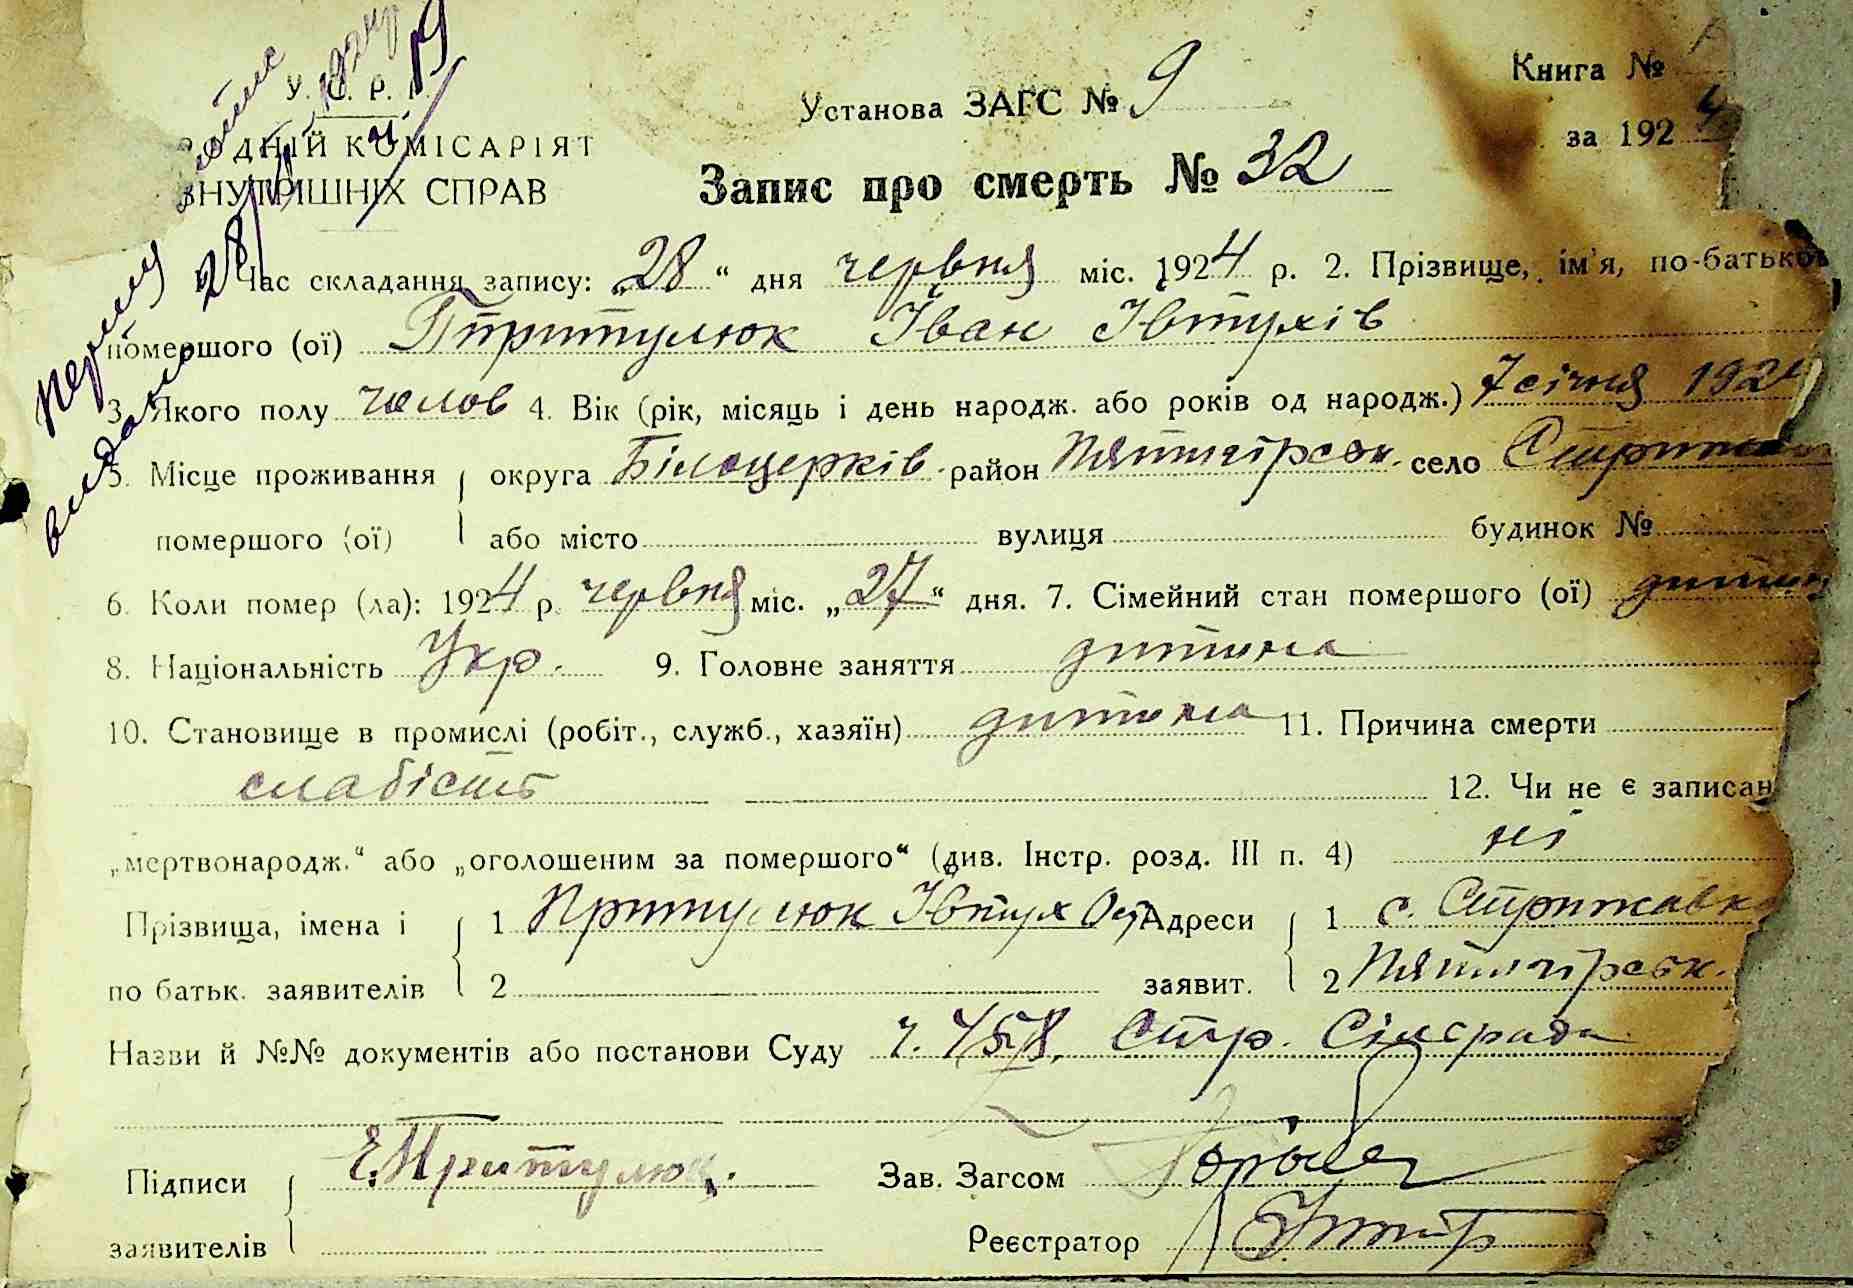 Книга №
У. С. Р. Р.
Установа ЗАГС № 9
за 1924
НИЙ КОМІСАРІЯТ
ВНУТРІШНІХ СПРАВ
Запис про смерть № 32
Час складання запису: „28“ дня червня міс. 1924 р. 2. Прізвище, ім'я, по-батькові
помершого (ої) Притулюк Іван Івтухів
3. Якого полу чолов 4. Вік (рік, місяць і день народж. або років од народж.) 7 січня 192
5. Місце проживання округа Білоцерків. район Пятигірськ. село Стрижав
помершого (ої) або місто вулиця будинок №
6. Коли помер (ла): 1924 р. червня міс. „27“ дня. 7. Сімейний стан помершого (ої) дитина
8. Національність Укр. 9. Головне заняття дитина
10. Становище в промислі (робіт., служб., хазяїн) дитина 11. Причина смерти
слабість 12. Чи не є записан
„мертвонародж.“ або „оголошеним за помершого“ (див. Інстр. розд. III п. 4) ні
Прізвища, імена і 1 Притулюк Івтух Адреси 1 с. Стрижавка
по батьк. заявителів 2 заявит. 2 Пятигірськ.
Назви й №№ документів або постанови Суду ч. 458, Стр. Сільрада
Підписи Є. Притулюк. Зав. Загсом
заявителів Реєстратор
перший
28